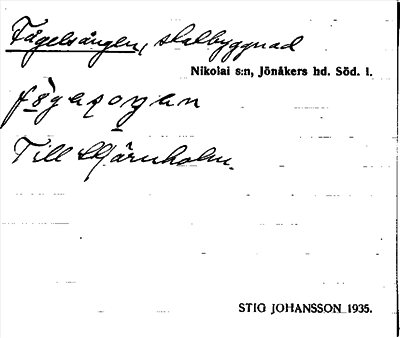 Fågelsången, skolbyggnad
Nikolai s:n, Jönåkers hd. Söd. l.
Till Stjärnholm.
STIG JOHANSSON 1935.